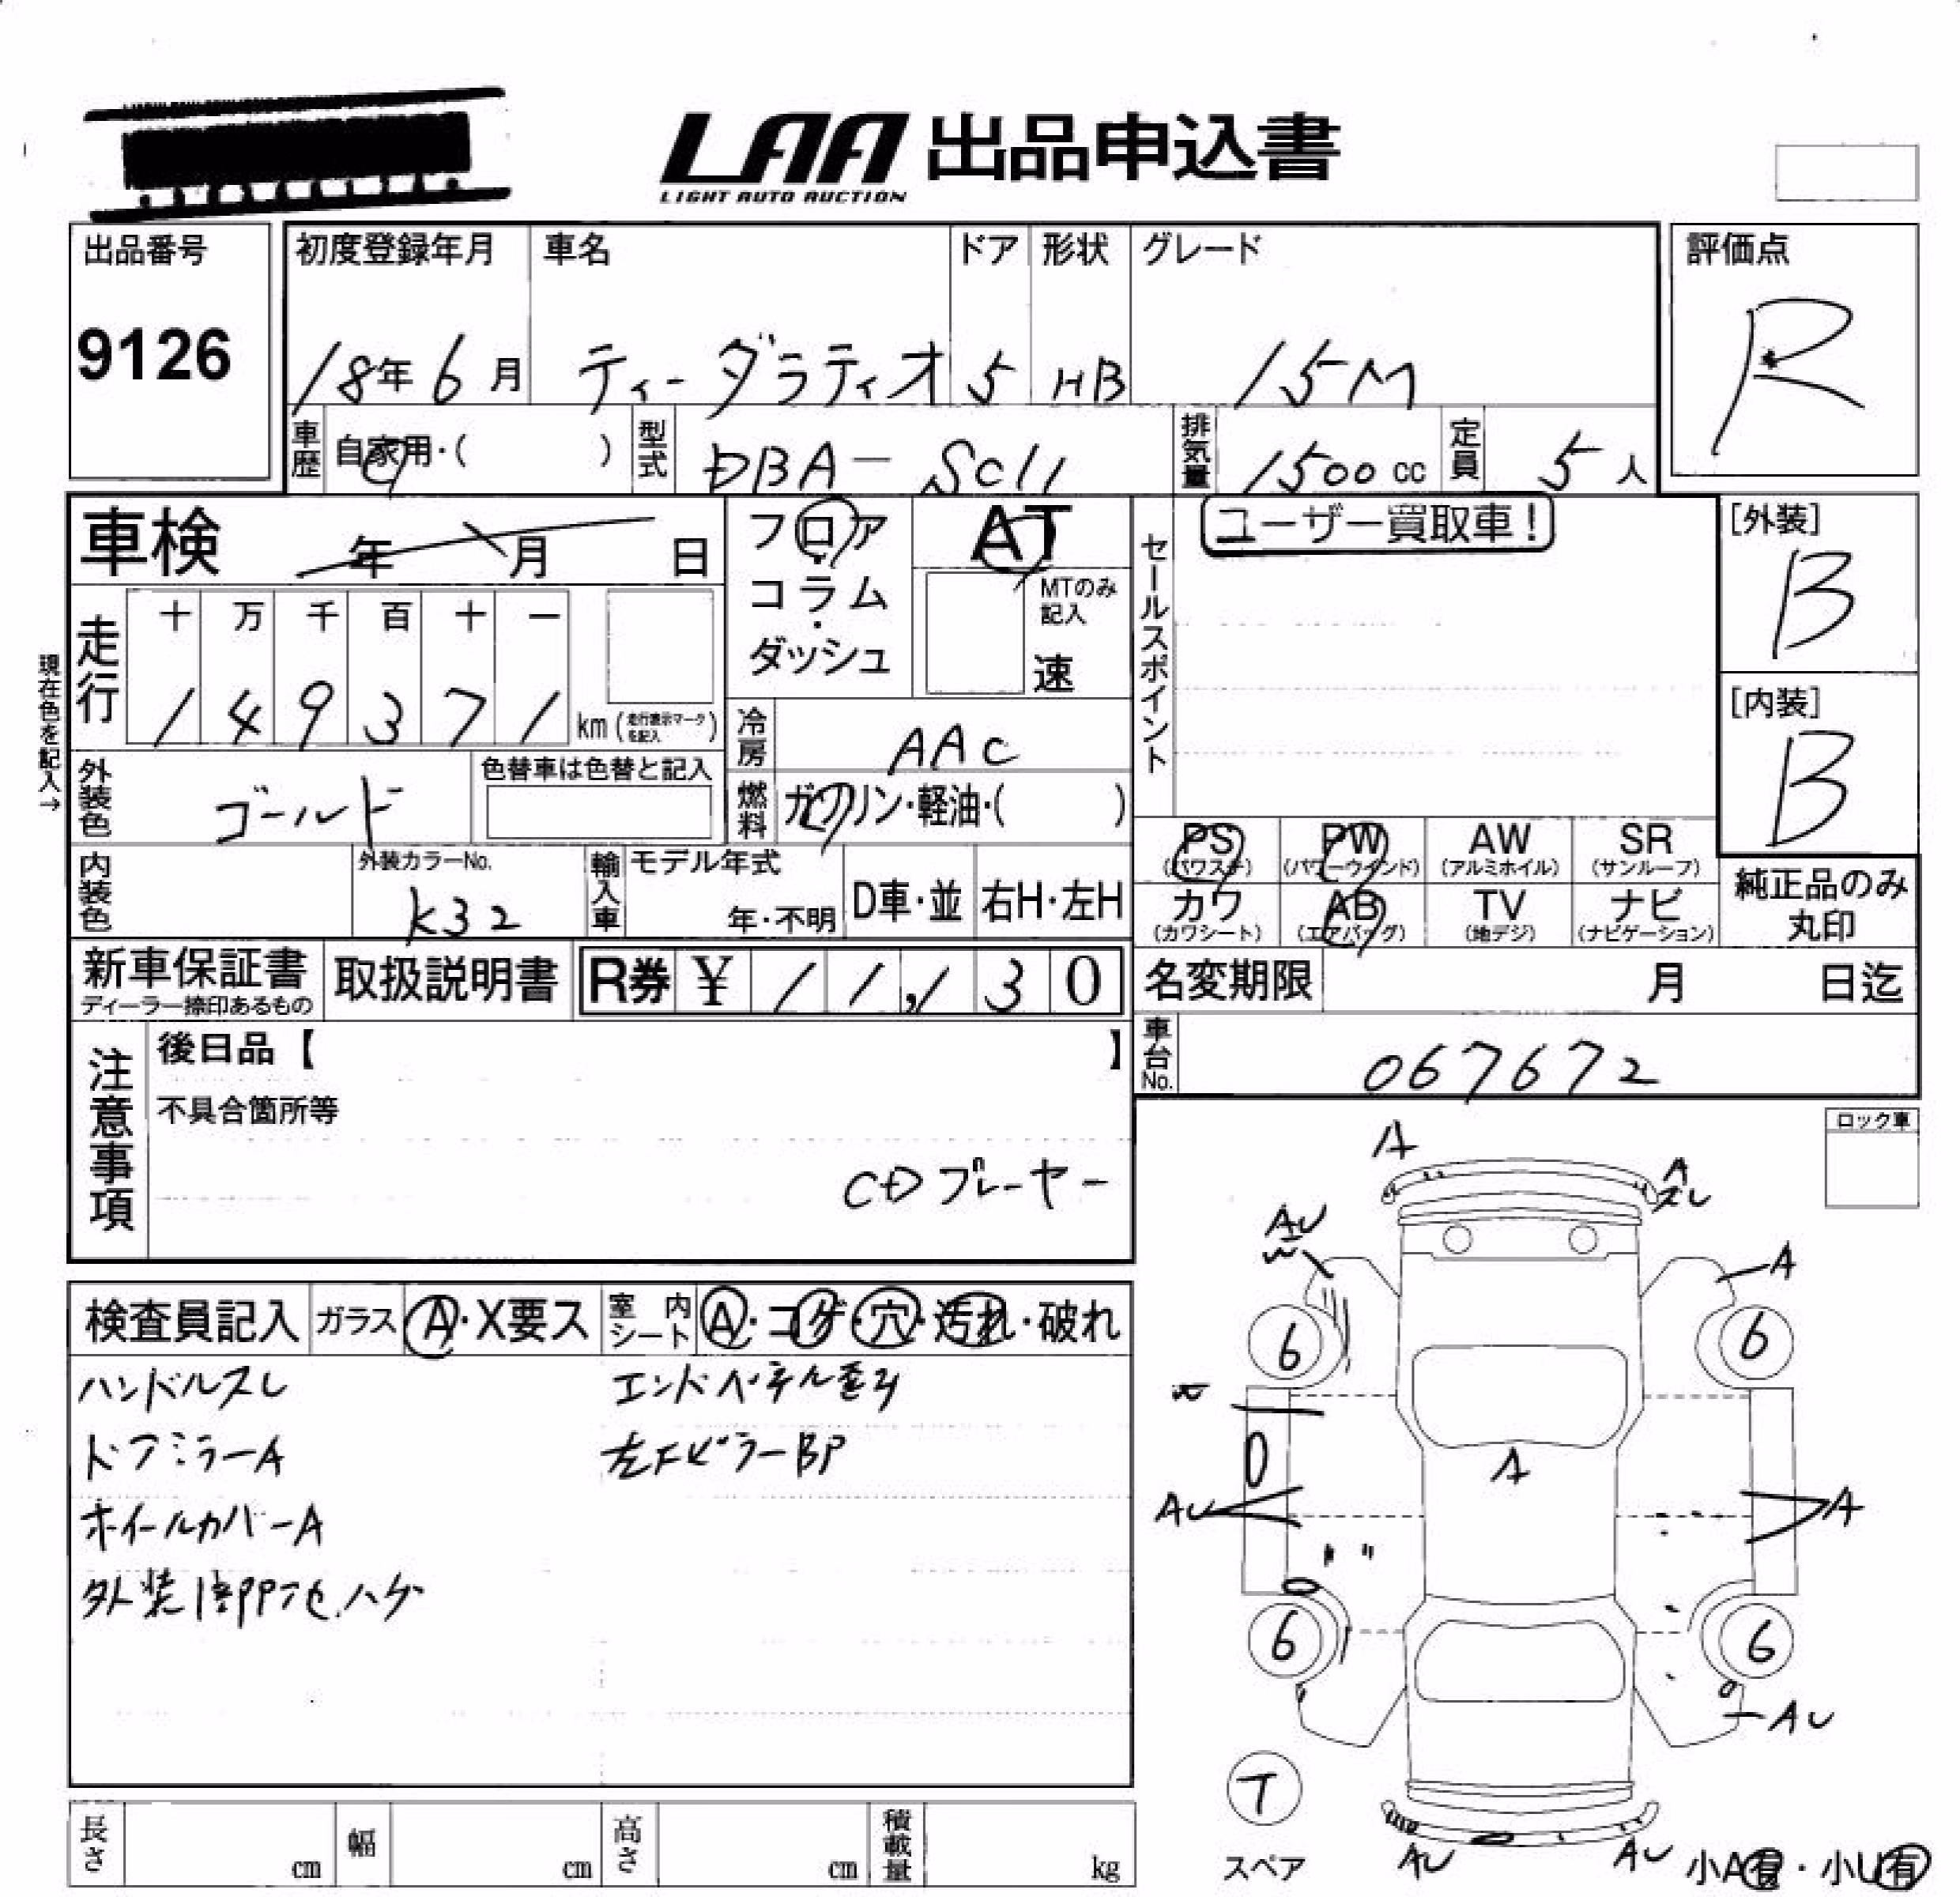 LAA 出品申込書
LIGHT AUTO AUCTION
出品番号 初度登録年月 車名 ドア 形状 グレード 評価点
9126 18年6月 ティーダラティオ 5 HB 15M R
車歴 自家用・( ) 型式 DBA-SC11 排気量 1500cc 定員 5人
車検 年 月 日 フロア・コラム・ダッシュ AT セールスポイント ユーザー買取車! [外装]
B
MTのみ記入
速
走行 十 万 千 百 十 一
1 4 9 3 7 1 km (走行表示マークを記入)
現在色を記入→
[内装]
B
冷房 AAC
外装色 ゴールド 色替車は色替と記入 燃料 ガソリン・軽油・( )
PS (パワステ) PW (パワーウインド) AW (アルミホイル) SR (サンルーフ)
内装色 外装カラーNo. K32 輸入車 モデル年式 年・不明 D車・並 右H・左H
カワ (カワシート) AB (エアバッグ) TV (地デジ) ナビ (ナビゲーション) 純正品のみ丸印
新車保証書 ディーラー捺印あるもの 取扱説明書 R券 ¥ 11,130 名変期限 月 日迄
注意事項 後日品【 】 車台No. 067672
不具合箇所等
CDプレーヤー
ロック車
検査員記入 ガラス A・X要ス 室内シート A・コゲ・穴・汚れ・破れ
ハンドルスレ
エンドパネル歪み
ドアミラーA
左FピラーBP
ホイールカバーA
外装 ハゲ
A
A
スレ
AU
A
6
6
A
AU
A
6
6
AU
T
スペア
AU
AU
小A有・小U有
長さ cm 幅 cm 高さ cm 積載量 kg